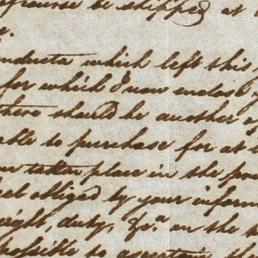 be shipped at
conducta which left this
for which I now enclose
there should be another
able to purchase for at
taken place in the
obliged by your inform
freight, duty, &c.a on the
possible to ascertain the